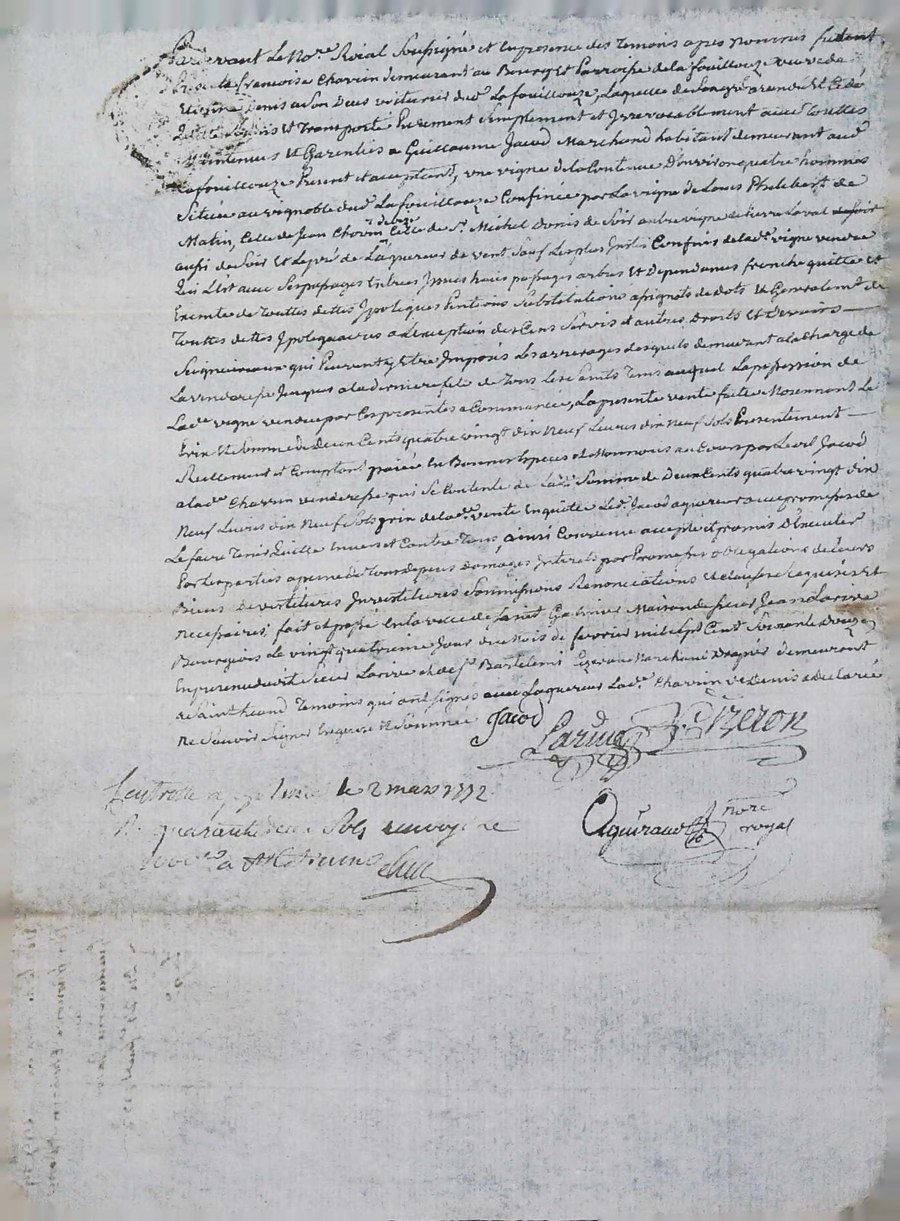 Pardevant Le No.re Roial Soussigné et En presence des Temoins apres Nommés fut dont
francoise Charrin demeurant au Bourg Et Parroisse de la fouillouze veuve de
Etienne Denis a Son Deces voiturier dud. La fouillouze, Laquelle de Son gré a vendu Et Cédé
et Transporté Purement Simplement et Irrevocablement avec Touttes
Maintenues Et Garenties a Guillaume Jacod Marchand habitant demeurant aud.
La fouillouze Present et acceptant, une vigne de la Contenue D'environ quatre hommes
Située au vignoble dud. La fouillouze Confinée par La vigne de Louis Philibert de
Matin, Celle de Jean Charrin de bize Celle de S.r Michel Denis de Soir autre vigne de Laval
aussi de Soir et Le pré de Laquereur de vent Sauf Les plus Justes Confins de lad. vigne vendue
Qui L'Est avec Ses passages Entrées Issues hais passages arbres et Dependances franche quitte et
Exempte de Touttes dettes Ipoteques Pentions Substitutions assignats de dots Et Generalem.t de
Touttes dettes Ipotequaires a L'exception des Cens Servis et autres Droits et Devoirs
Seigneuriaux qui Peuvent y Etre Imposés Les arrerages desquels demeurent a la Charge de
La venderesse Jusques a la derniere fete de Tous Les Saints Tems auquel La possession de
Lad.e vigne vendue par Ces presentes a Commencé, La presente vente faite Moiennant Le
Prix Et Somme de Deux Cents quatre vingt dix Neuf Livres dix Neuf Sols Presentement
Reellement et Comptant paiée En Bonnes Especes et Monnoies au Cours par Led. Jacod
a lad.e Charrin venderesse qui Se Contente de Lad. Somme de Deux Cents quatre vingt dix
Neuf Livres dix Neuf Sols prix de lad.e vente En quitte Led. Jacod aquereur avec promesse de
Le faire Tenir Quitte Envers et Contre Tous, ainsi Convenu accepté et promis D'Executer
Par Les parties a peine de Tous depens domages Interets par Promesses obligations de Leurs
Biens Devestitures Investitures Soumissions Renonciations Et Clauses Requises Et
Necessaires, fait et passé En la ville de Saint Galmier Maison de Sieur Jean Larive
Bourgeois Le vingt quatrieme Jour du Mois de fevrier mil Sept Cent Soixante Douze
En presence dudit Sieur Larive et de S.r Bartelemi Marchand demeurant
a Saint heand Temoins qui ont Signés avec Laquereur Lad. Charrin ve Denis a declaré
Ne Savoir Signer Enquise Et Sommée
Jacod
Larive
Aguiraud no.re royal
le 2 mars 1772
R. quarante deux Sols
a St Etienne